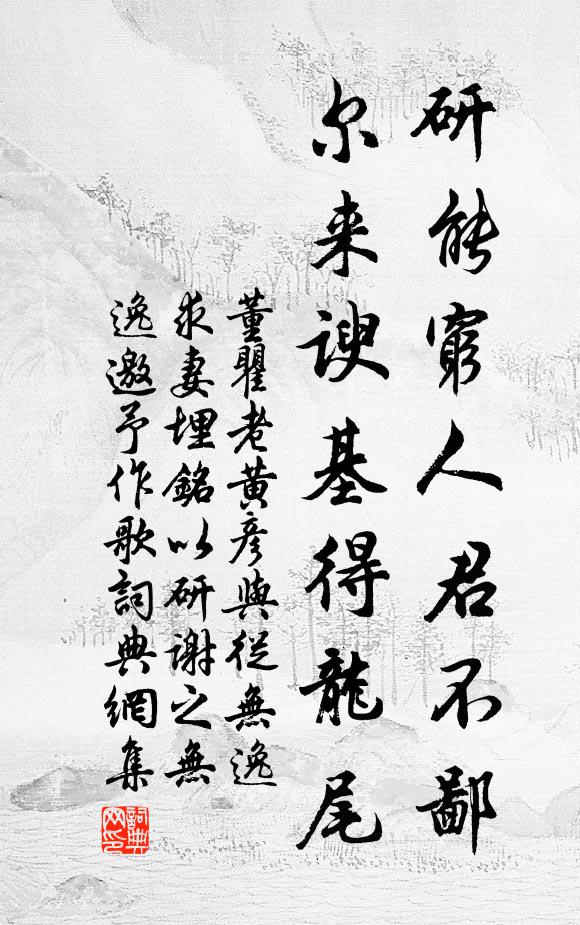 研能窮人君不鄙
尔来謏基得龍尾
董瞿老黄彦與從無逸
求妻埋銘以研謝之無
逸邀予作歌詞典網集
詞典
网印